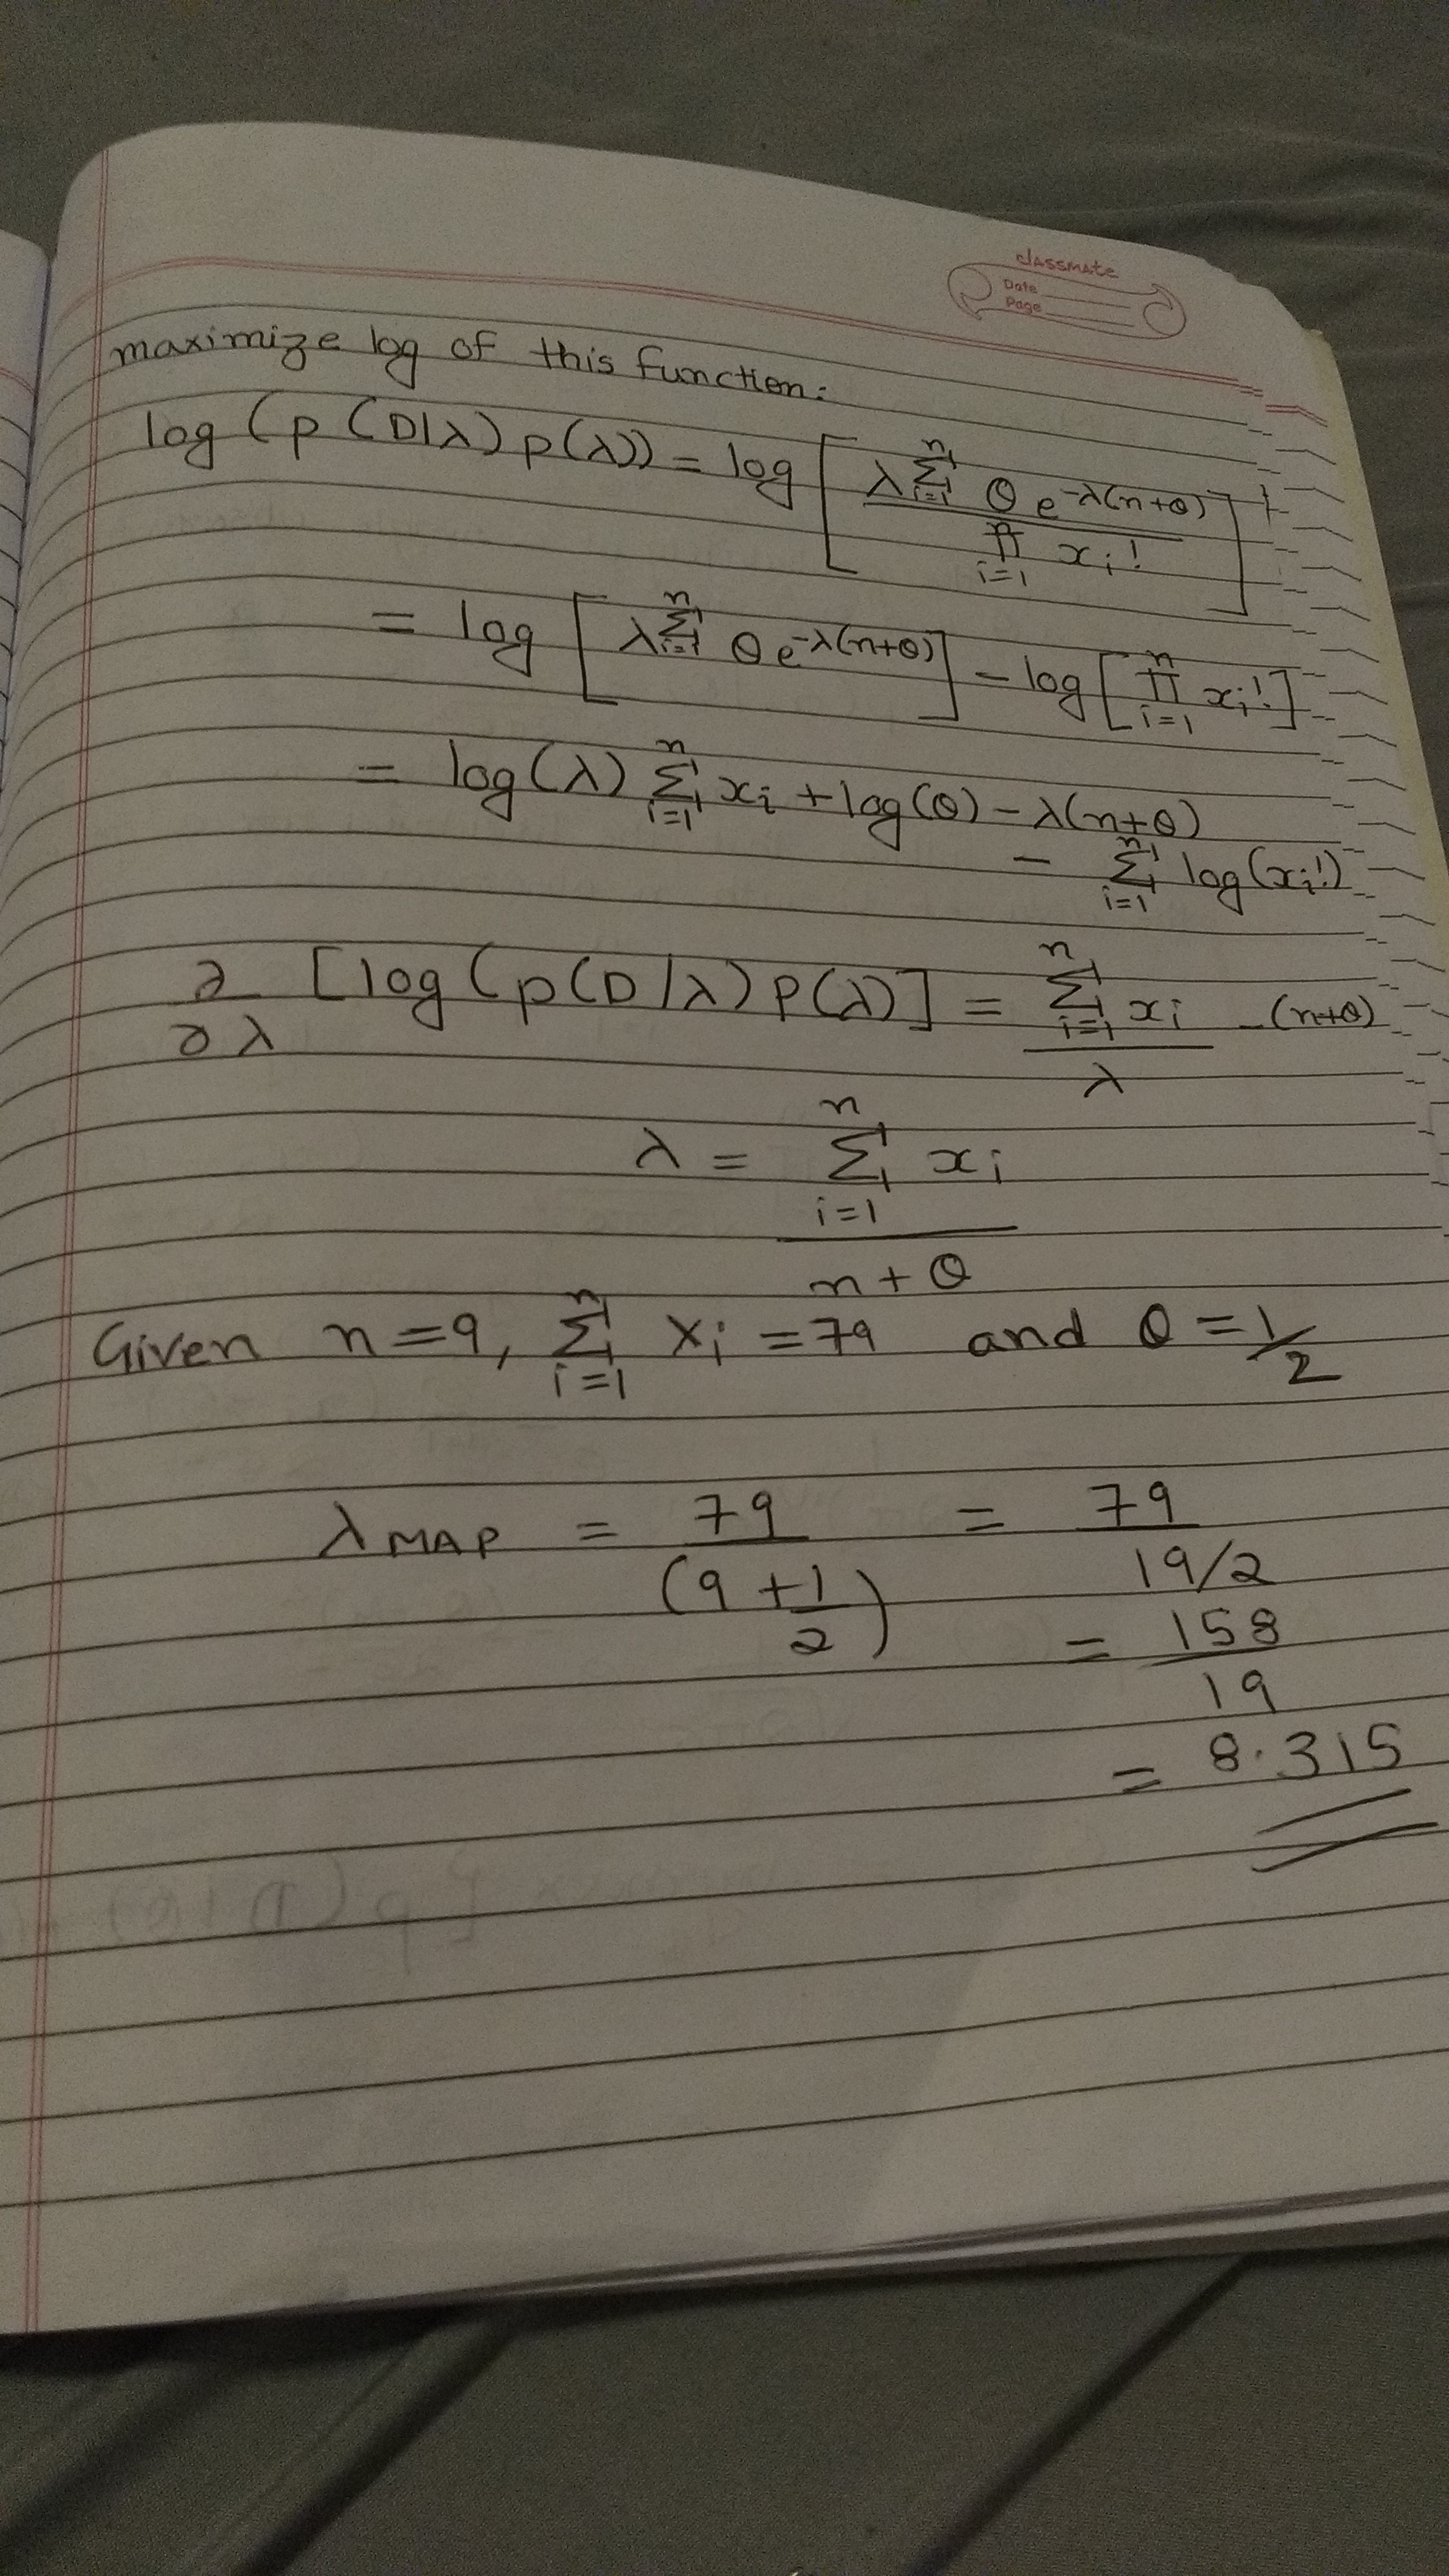 classmate
Date
Page
maximize log of this function:
log (p (D|λ) p(λ)) = log [ λ^{Σ_{i=1}^{n}} θ e^{-λ(n+θ)} / ∏_{i=1}^{n} x_i! ]
= log [ λ^{Σ_{i=1}^{n}} θ e^{-λ(n+θ)} ] - log [ ∏_{i=1}^{n} x_i! ]
= log(λ) Σ_{i=1}^{n} x_i + log(θ) - λ(n+θ)
- Σ_{i=1}^{n} log(x_i!)
∂/∂λ [log (p(D/λ) P(λ)] = Σ_{i=1}^{n} x_i / λ - (n+θ)
λ = Σ_{i=1}^{n} x_i / n + θ
Given n = 9, Σ_{i=1}^{n} x_i = 79 and θ = 1/2
λ_MAP = 79 / (9 + 1/2) = 79 / 19/2
= 158 / 19
= 8.315